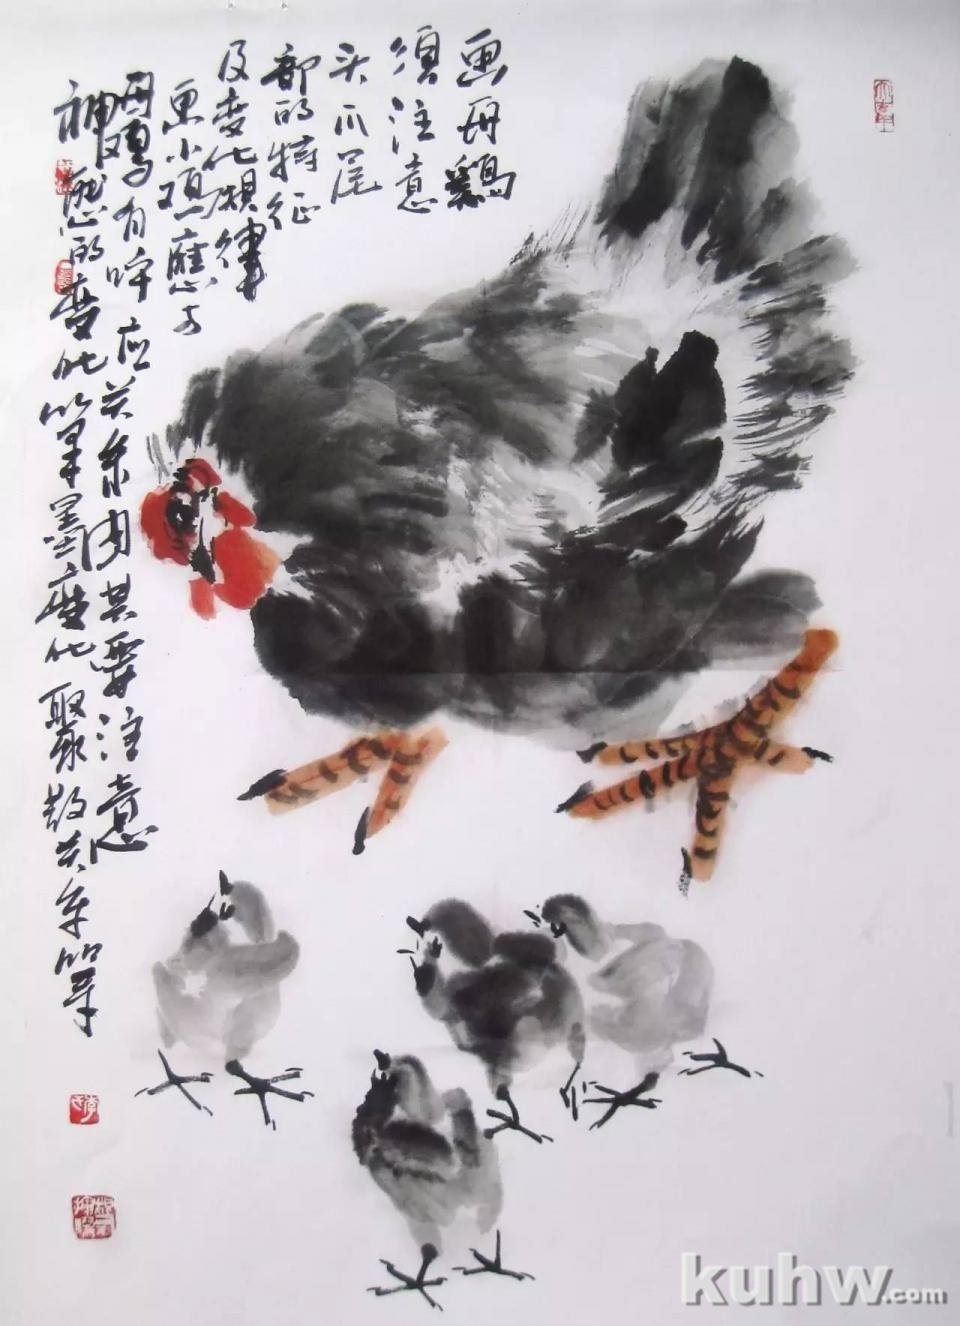 画母鸡
须注意
头爪尾
部的特征
及变化规律
画小鸡应与
母鸡有呼应关系尤其要注意
神态的变化笔墨变化聚散关系等
kuhw.com